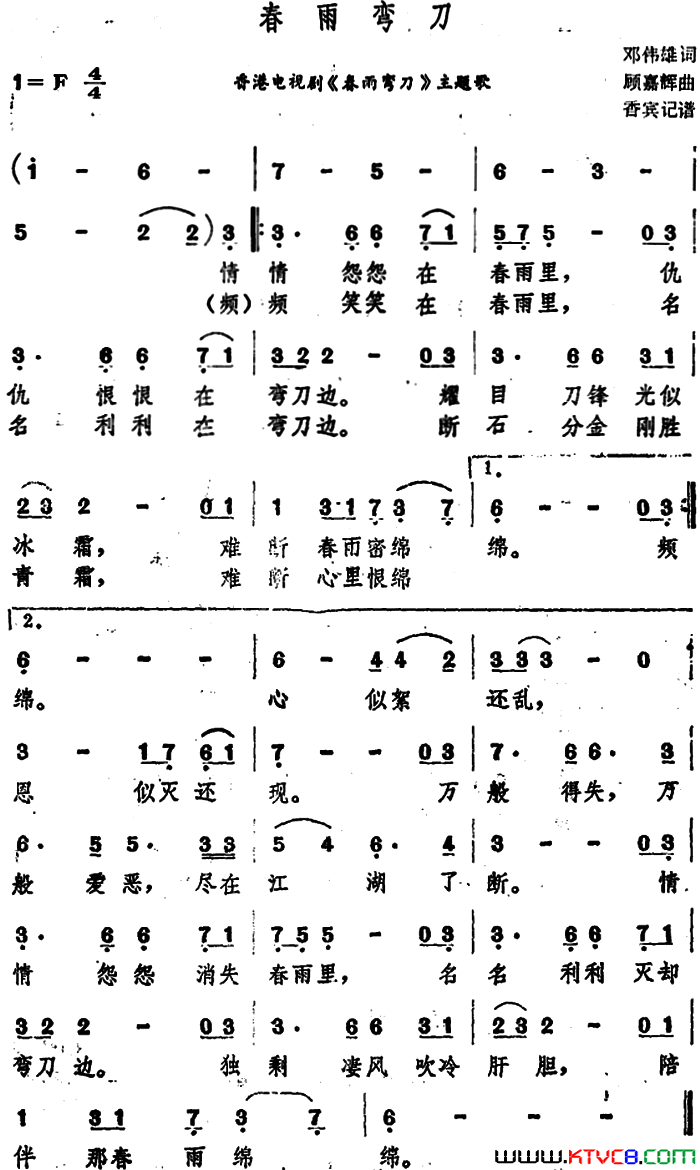 春雨弯刀
邓伟雄词
1=F 4/4 香港电视剧《春雨弯刀》主题歌 顾嘉辉曲
香宾记谱
(1 - 6 - | 7 - 5 - | 6 - 3 - |
5 - 2 2) 3 ‖: 3. 6 6 7 1 | 5 7 5 - 0 3 |
情 情 怨怨在 春雨里，仇
（频）频 笑笑在 春雨里，名
3. 6 6 7 1 | 3 2 2 2 - 0 3 | 3. 6 6 3 1 |
仇 恨恨在 弯刀边。耀 目 刀锋光似
名 利利在 弯刀边。断 石 分金刚胜
1.
2 3 2 - 0 1 | 1 3 1 7 3 7 | 6 - - 0 3 :‖
冰霜，难 断 春雨密绵 绵。频
青霜，难 断 心里恨绵
2.
6 - - - | 6 - 4 4 2 | 3 3 3 - 0 |
绵。 心 似絮 还乱，
3 - 1 7 6 1 | 7 - - 0 3 | 7. 6 6. 3 |
恩 似灭还 现。万 般 得失，万
6. 5 5. 3 3 | 5 4 6. 4 | 3 - - 0 3 |
般 爱恶，尽在 江 湖了 断。情
3. 6 6 7 1 | 5 7 5 5 - 0 3 | 3. 6 6 7 1 |
情 怨怨 消失 春雨里，名 名 利利 灭却
3 2 2 2 - 0 3 | 3. 6 6 3 1 | 2 3 2 - 0 1 |
弯刀边。独 剩 凄风吹冷 肝胆，陪
1 3 1 7 3 7 | 6 - - - ‖
伴 那春 雨绵 绵。
www.KTVC8.com